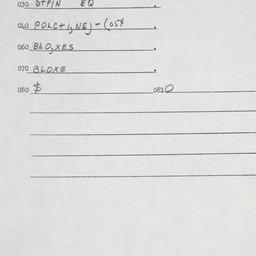 030 STPIN EQ
040 POLC+1,NEJ-(ost
060 BLO,XES
070 BLOXE
080 $ 081 0